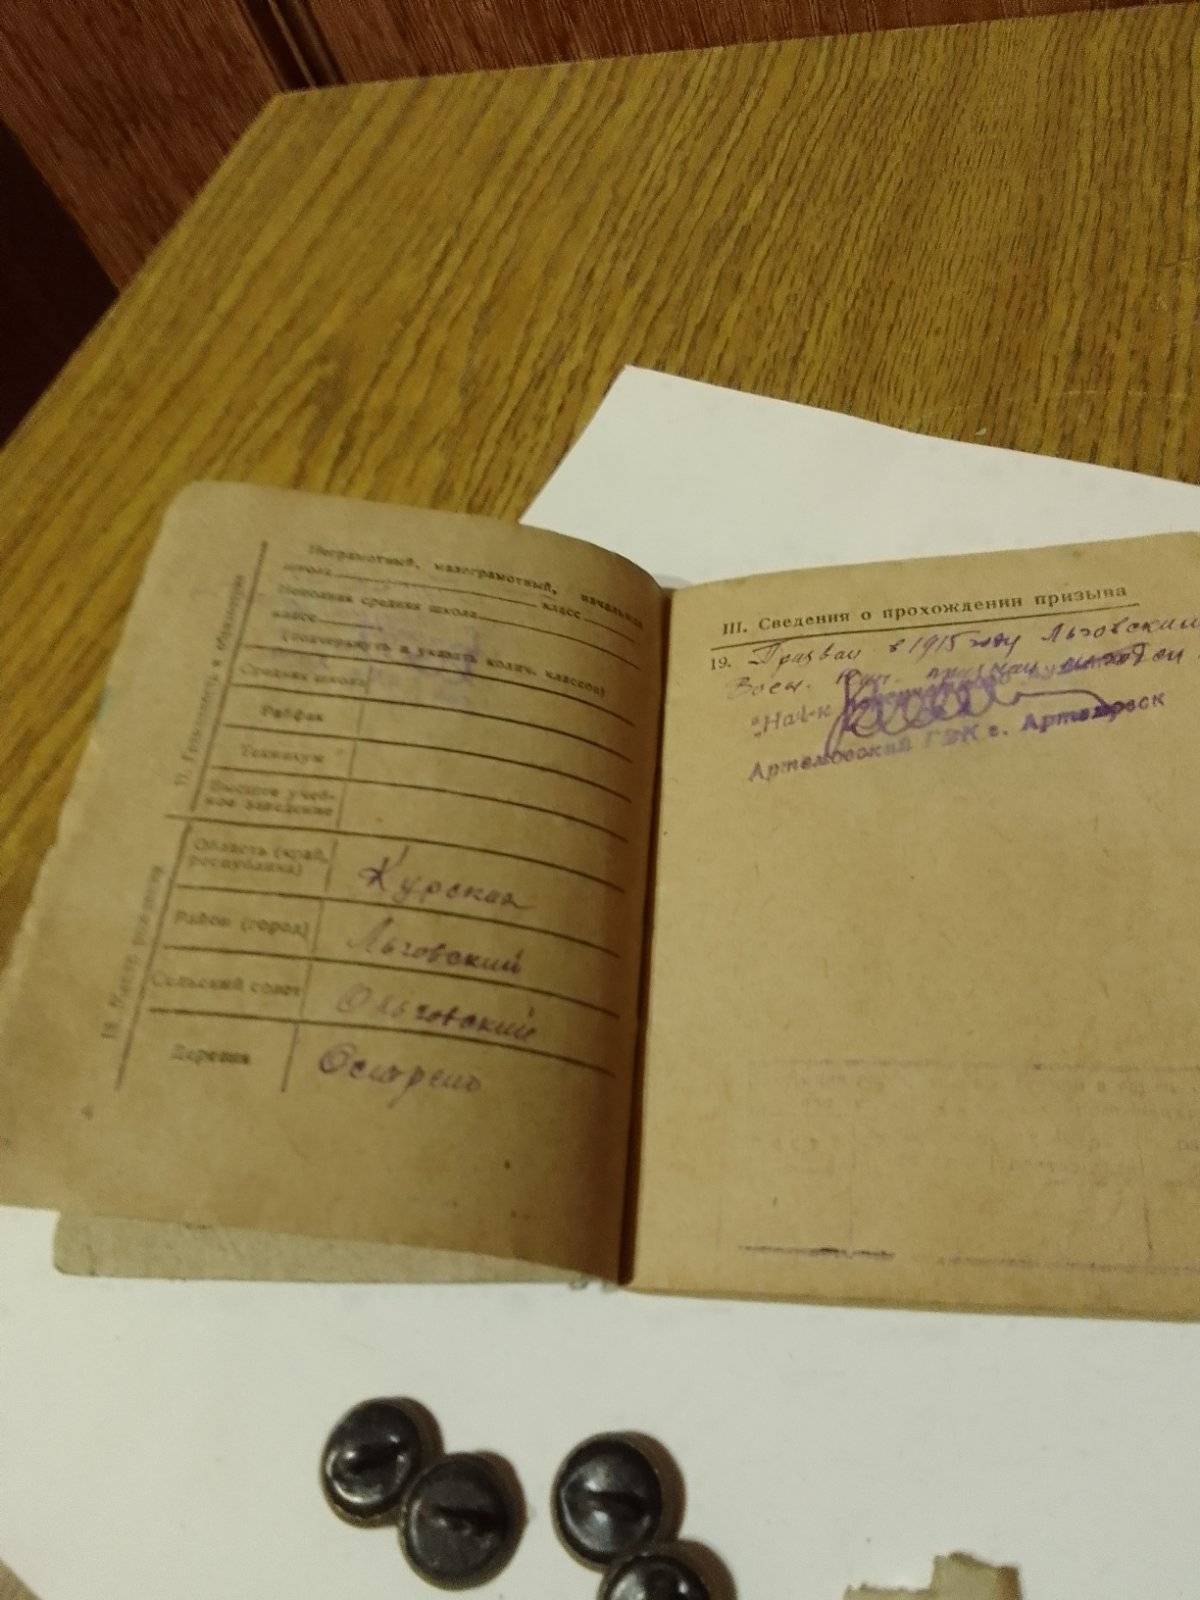 17. Грамотность и образование
Неграмотный, малограмотный, начальная
школа класс
Неполная средняя школа
классе
(подчеркнуть и указать колич. классов)
Средняя школа
Рабфак
Техникум
Высшее учеб-
ное заведение
18. Место рождения
Область (край,
республика) Курская
Район (город) Льговский
Сельский совет Ольговский
Деревня
4
III. Сведения о прохождении призыва
19. Призван в 1915 году Льговским
Воен.
Нач-к
Артемовский ГВК г. Артемовск